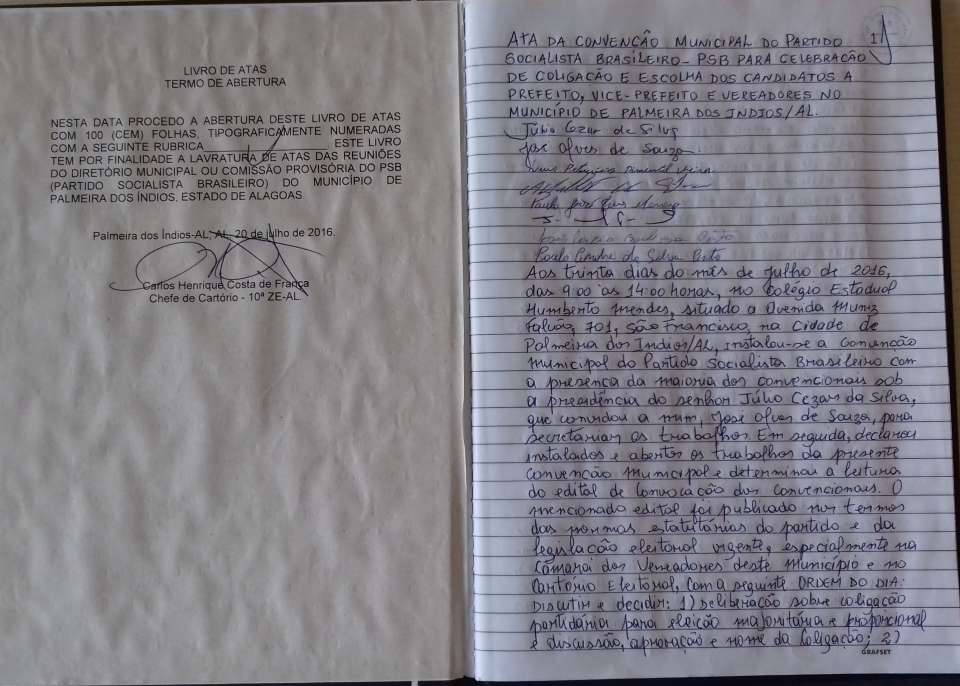 LIVRO DE ATAS
TERMO DE ABERTURA
NESTA DATA PROCEDO A ABERTURA DESTE LIVRO DE ATAS
COM 100 (CEM) FOLHAS, TIPOGRAFICAMENTE NUMERADAS
COM A SEGUINTE RUBRICA____________________ ESTE LIVRO
TEM POR FINALIDADE A LAVRATURA DE ATAS DAS REUNIÕES
DO DIRETÓRIO MUNICIPAL OU COMISSÃO PROVISÓRIA DO PSB
(PARTIDO SOCIALISTA BRASILEIRO) DO MUNICÍPIO DE
PALMEIRA DOS ÍNDIOS, ESTADO DE ALAGOAS.
Palmeira dos Índios-AL, AL, 20 de julho de 2016.
Carlos Henrique Costa de França
Chefe de Cartório - 10ª ZE-AL
1
ATA DA CONVENÇÃO MUNICIPAL DO PARTIDO
SOCIALISTA BRASILEIRO - PSB PARA CELEBRAÇÃO
DE COLIGAÇÃO E ESCOLHA DOS CANDIDATOS A
PREFEITO, VICE-PREFEITO E VEREADORES NO
MUNICÍPIO DE PALMEIRA DOS INDIOS/AL.
Júlio Cezar da Silva
José Alves de Souza
Pimentel Vieira
Silva
Paulo
Paulo da Silva
Aos trinta dias do mês de julho de 2016,
das 9:00 às 14:00 horas, no Colégio Estadual
Humberto Mendes, situado a Avenida Muniz
Falcão, 701, São Francisco, na Cidade de
Palmeira dos Indios/AL, instalou-se a Convenção
Municipal do Partido Socialista Brasileiro com
a presença da maioria dos convencionais sob
a presidência do senhor Júlio Cezar da Silva,
que convidou a mim, José Alves de Souza, para
secretariar os trabalhos. Em seguida, declarou
instalados e abertos os trabalhos da presente
Convenção Municipal e determinou a leitura
do edital de Convocação dos Convencionais. O
mencionado edital foi publicado nos termos
das normas estatutárias do partido e da
legislação eleitoral vigente, especialmente na
Câmara dos Vereadores deste Município e no
Cartório Eleitoral, com a seguinte ORDEM DO DIA:
Discutir e decidir: 1) Deliberação sobre coligação
partidária para eleição majoritária e proporcional
e discussão, aprovação e nome da Coligação; 2)
GRAFSET